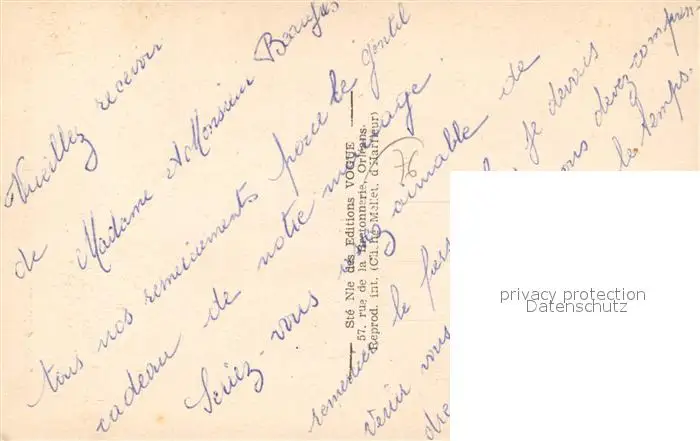 Veuillez recevoir
de Madame et Monsieur
tous nos remerciements pour le gentil
cadeau de notre mariage
Seriez-vous aimable de
remercier le je devais
venir vous vous devez compren
dre le temps.
Sté Nle des Editions VOGUE
57, rue de la Bretonnerie, Orléans.
Reprod. int. (Cliché Mellet, d'Harfleur)
76
privacy protection
Datenschutz